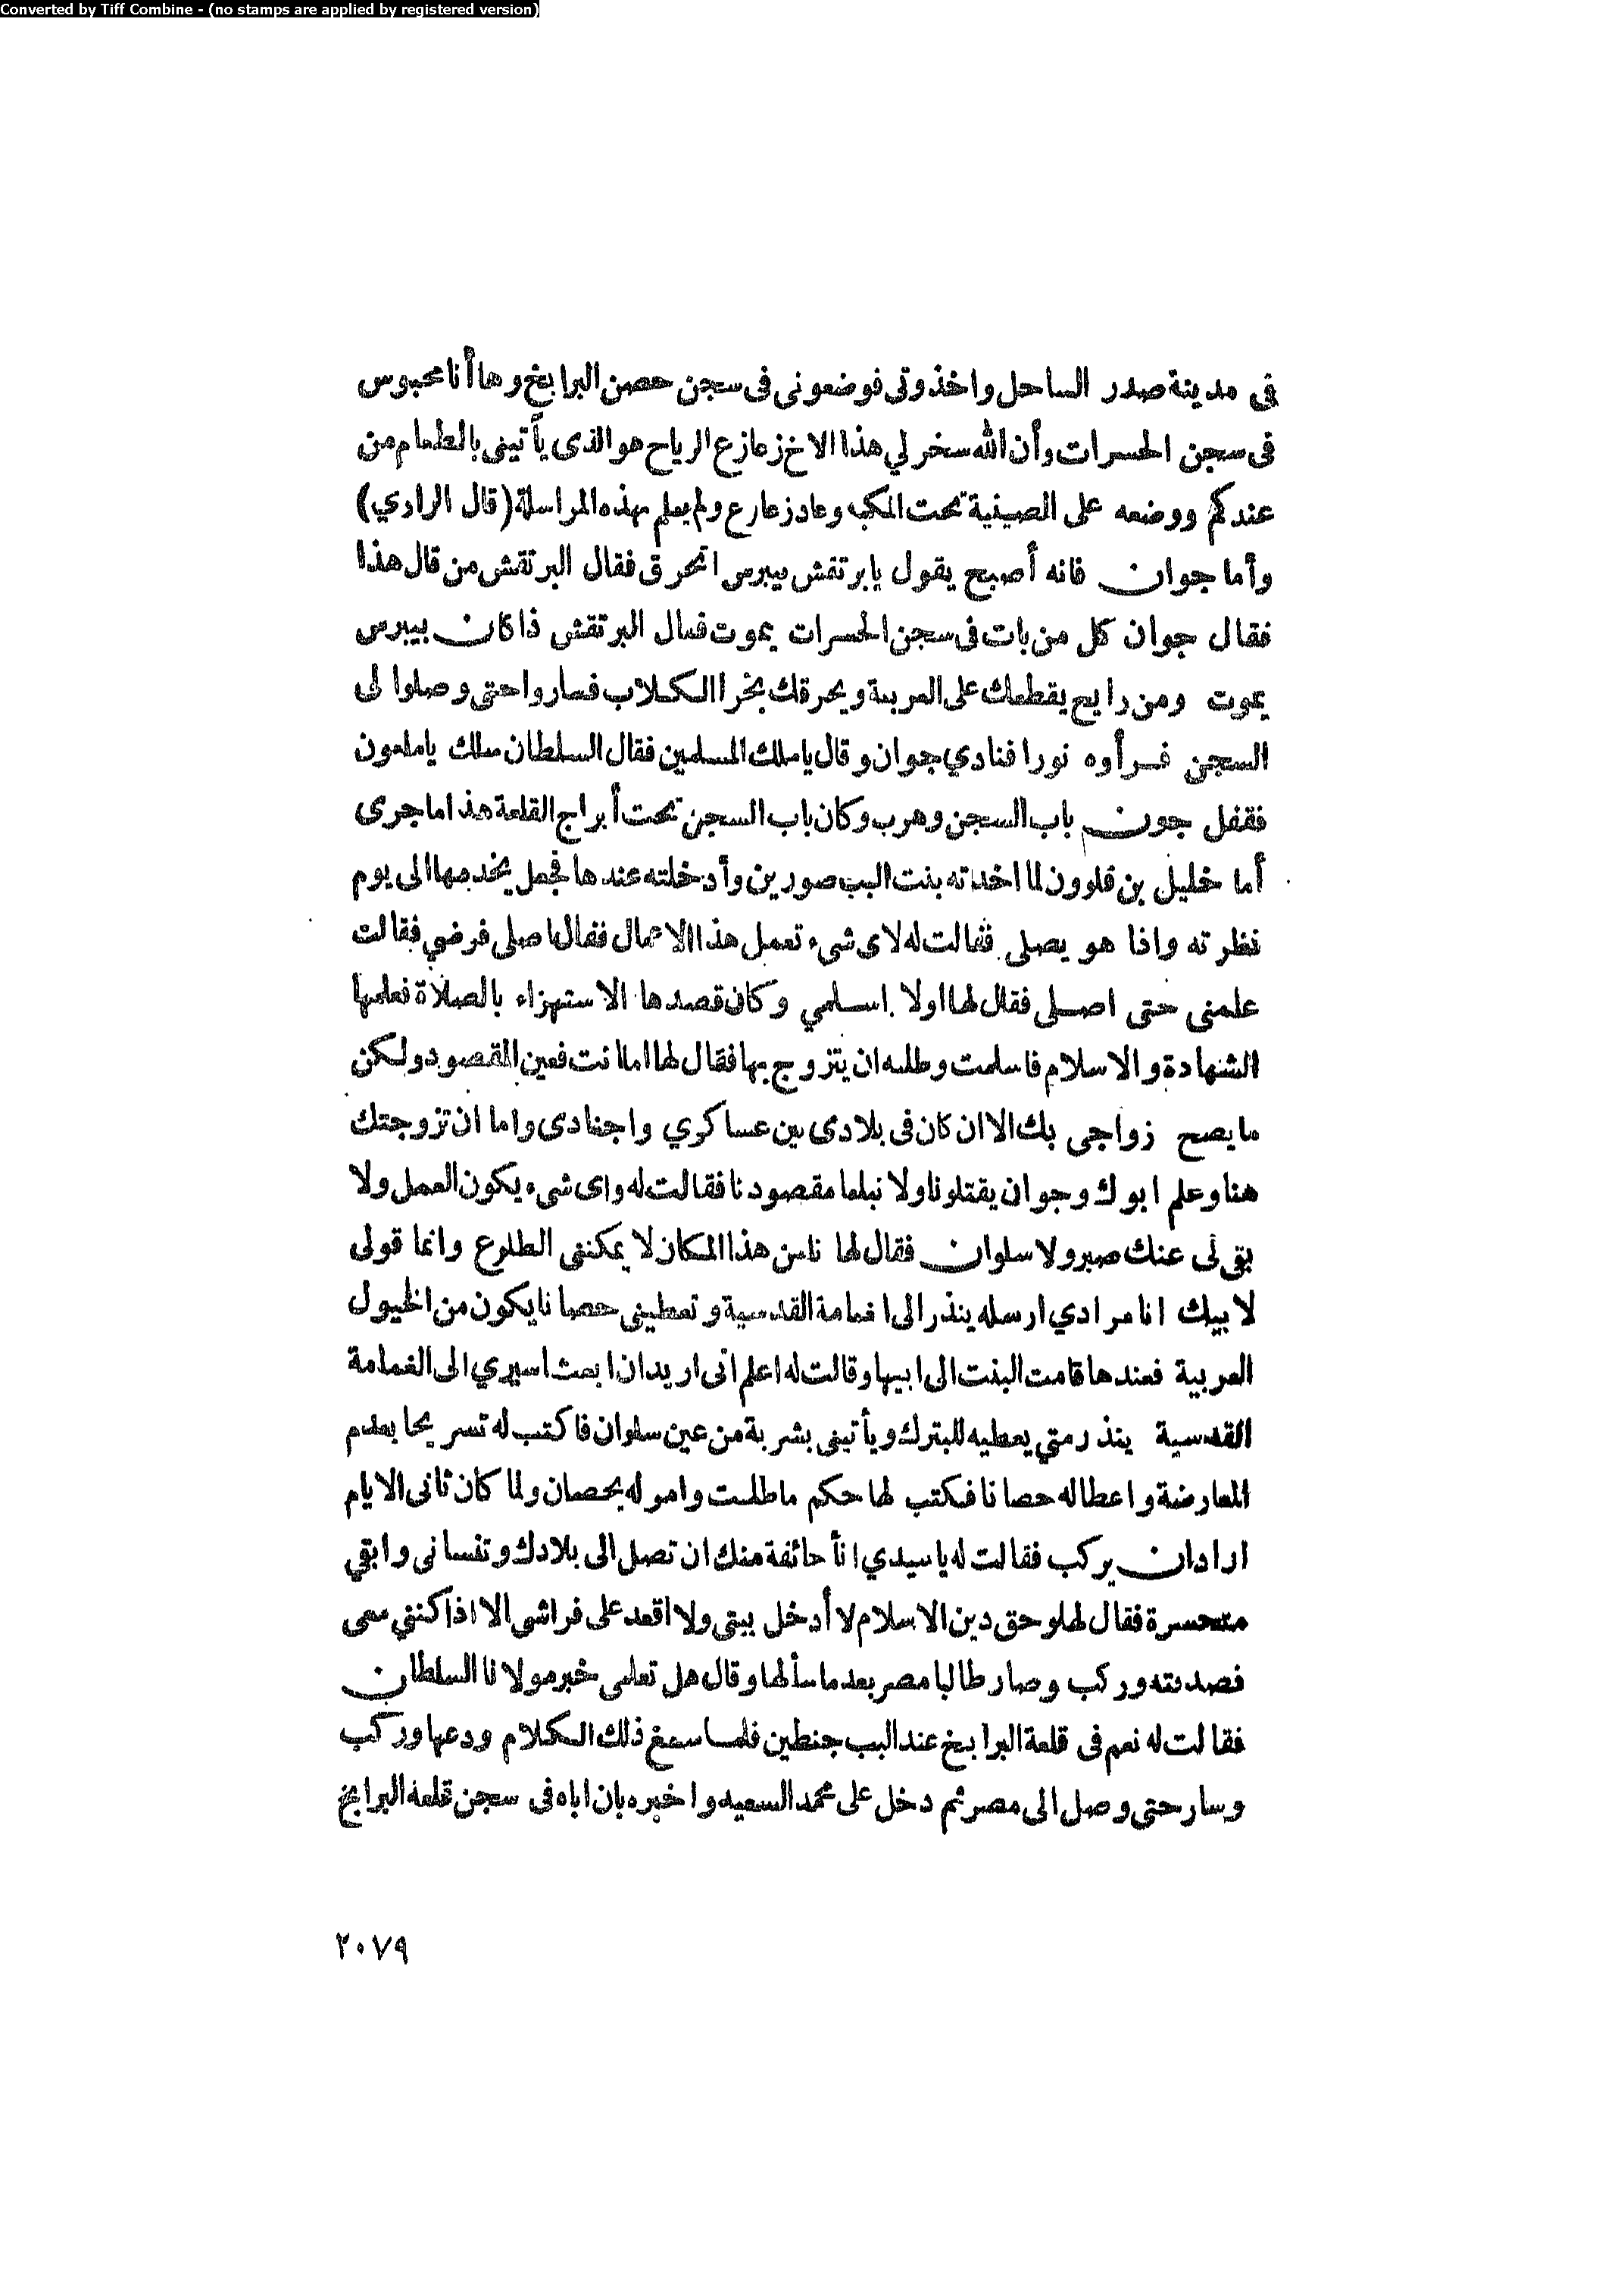 Converted by Tiff Combine - (no stamps are applied by registered version)
فى مدينة صدر الساحل واخذوتى فوضعونى فى سجن حصن البرابغ وها أنا محبوس
فى سجن الحسرات وأن الله سخر لي هذا الاخ زعازع الرياح هو الذى يأتينى بالطعام من
عندكم ووضعه على الصينية تحت المكبه وعاد زعارع ولم يعلم بهذه المراسلة (قال الرادي)
وأما جوان فانه أصبح يقول يابرتقش بيبرس اتحرق فقال البرتقش من قال هذا
فقال جوان كل من بات فى سجن الحسرات يموت فقال البرتقش ذا كان بيبرس
يموت ومن رايح يقطعك على العربية ويحرقك بخرا الكلاب فساروا حتى وصلوا لى
السجن فرأوه نورا فنادي جوان وقال ياملك المسلمين فقال السلطان سلك ياملعون
فقفل جون باب السجن وهرب وكان باب السجن تحت أبراج القلعة هذا ما جرى
أما خليل بن قلوون لما اخدته بنت البب صورين وأدخلته عندها فجعل يخدمها الى يوم
نظرته واذا هو يصلى فقالت له لاى شىء تعمل هذا الاعمال فقال اصلى فرضي فقالت
علمنى حتى اصلى فقال لها اولا اسلمي وكان قصدها الاستهزاء بالصلاة فعلمها
الشهادة والاسلام فاسلمت وطلبه ان يتزوج بها فقال لها اما انت فعين القصود ولكن
ما يصح زواجى بك الا ان كان فى بلادى بين عساكري واجنادى واما ان تزوجتك
هنا وعلم ابوك وجوان يقتلونا ولا نبلغا مقصودنا فقالت له واى شىء يكون العمل ولا
بقى لى عنك صبر ولا سلوان فقال لها نامن هذا المكان لا يمكننى الطلوع وانما قولى
لابيك انا مرادي ارسله ينذر الى اغمامة القدسية وتعطينى حصانا يكون من الخيول
العربية فعندها قامت البنت الى ابيها وقالت له اعلم انى اريد ان ابعث اسيري الى الغمامة
القدسية ينذر متي يعطيه للبترك ويأتينى بشربة من عين سلوان فاكتب له تسريحا بعدم
المعارضة واعطاله حصانا فكتب لها حكم ماطلبت وامر له بحصان ولما كان ثانى الايام
اراد ان يركب فقالت له ياسيدي انأ حائفة منك ان تصل الى بلادك وتنسانى وابقي
متحسرة فقال لها وحق دين الاسلام لا أدخل بيتى ولا اقعد على فراشى الا اذا كنتي معى
فصدقته وركب وصار طالبا مصر بعد ما سألها وقال هل تعلمى خبر مولانا السلطان
فقالت له نعم فى قلعة البرابغ عند البب جنطين فلما سمغ ذلك الكلام ودعها وركب
وسار حتى وصل الى مصر ثم دخل على محمد السعيه واخبره بان اباه فى سجن قلعة البرابغ
٢٠٧٩